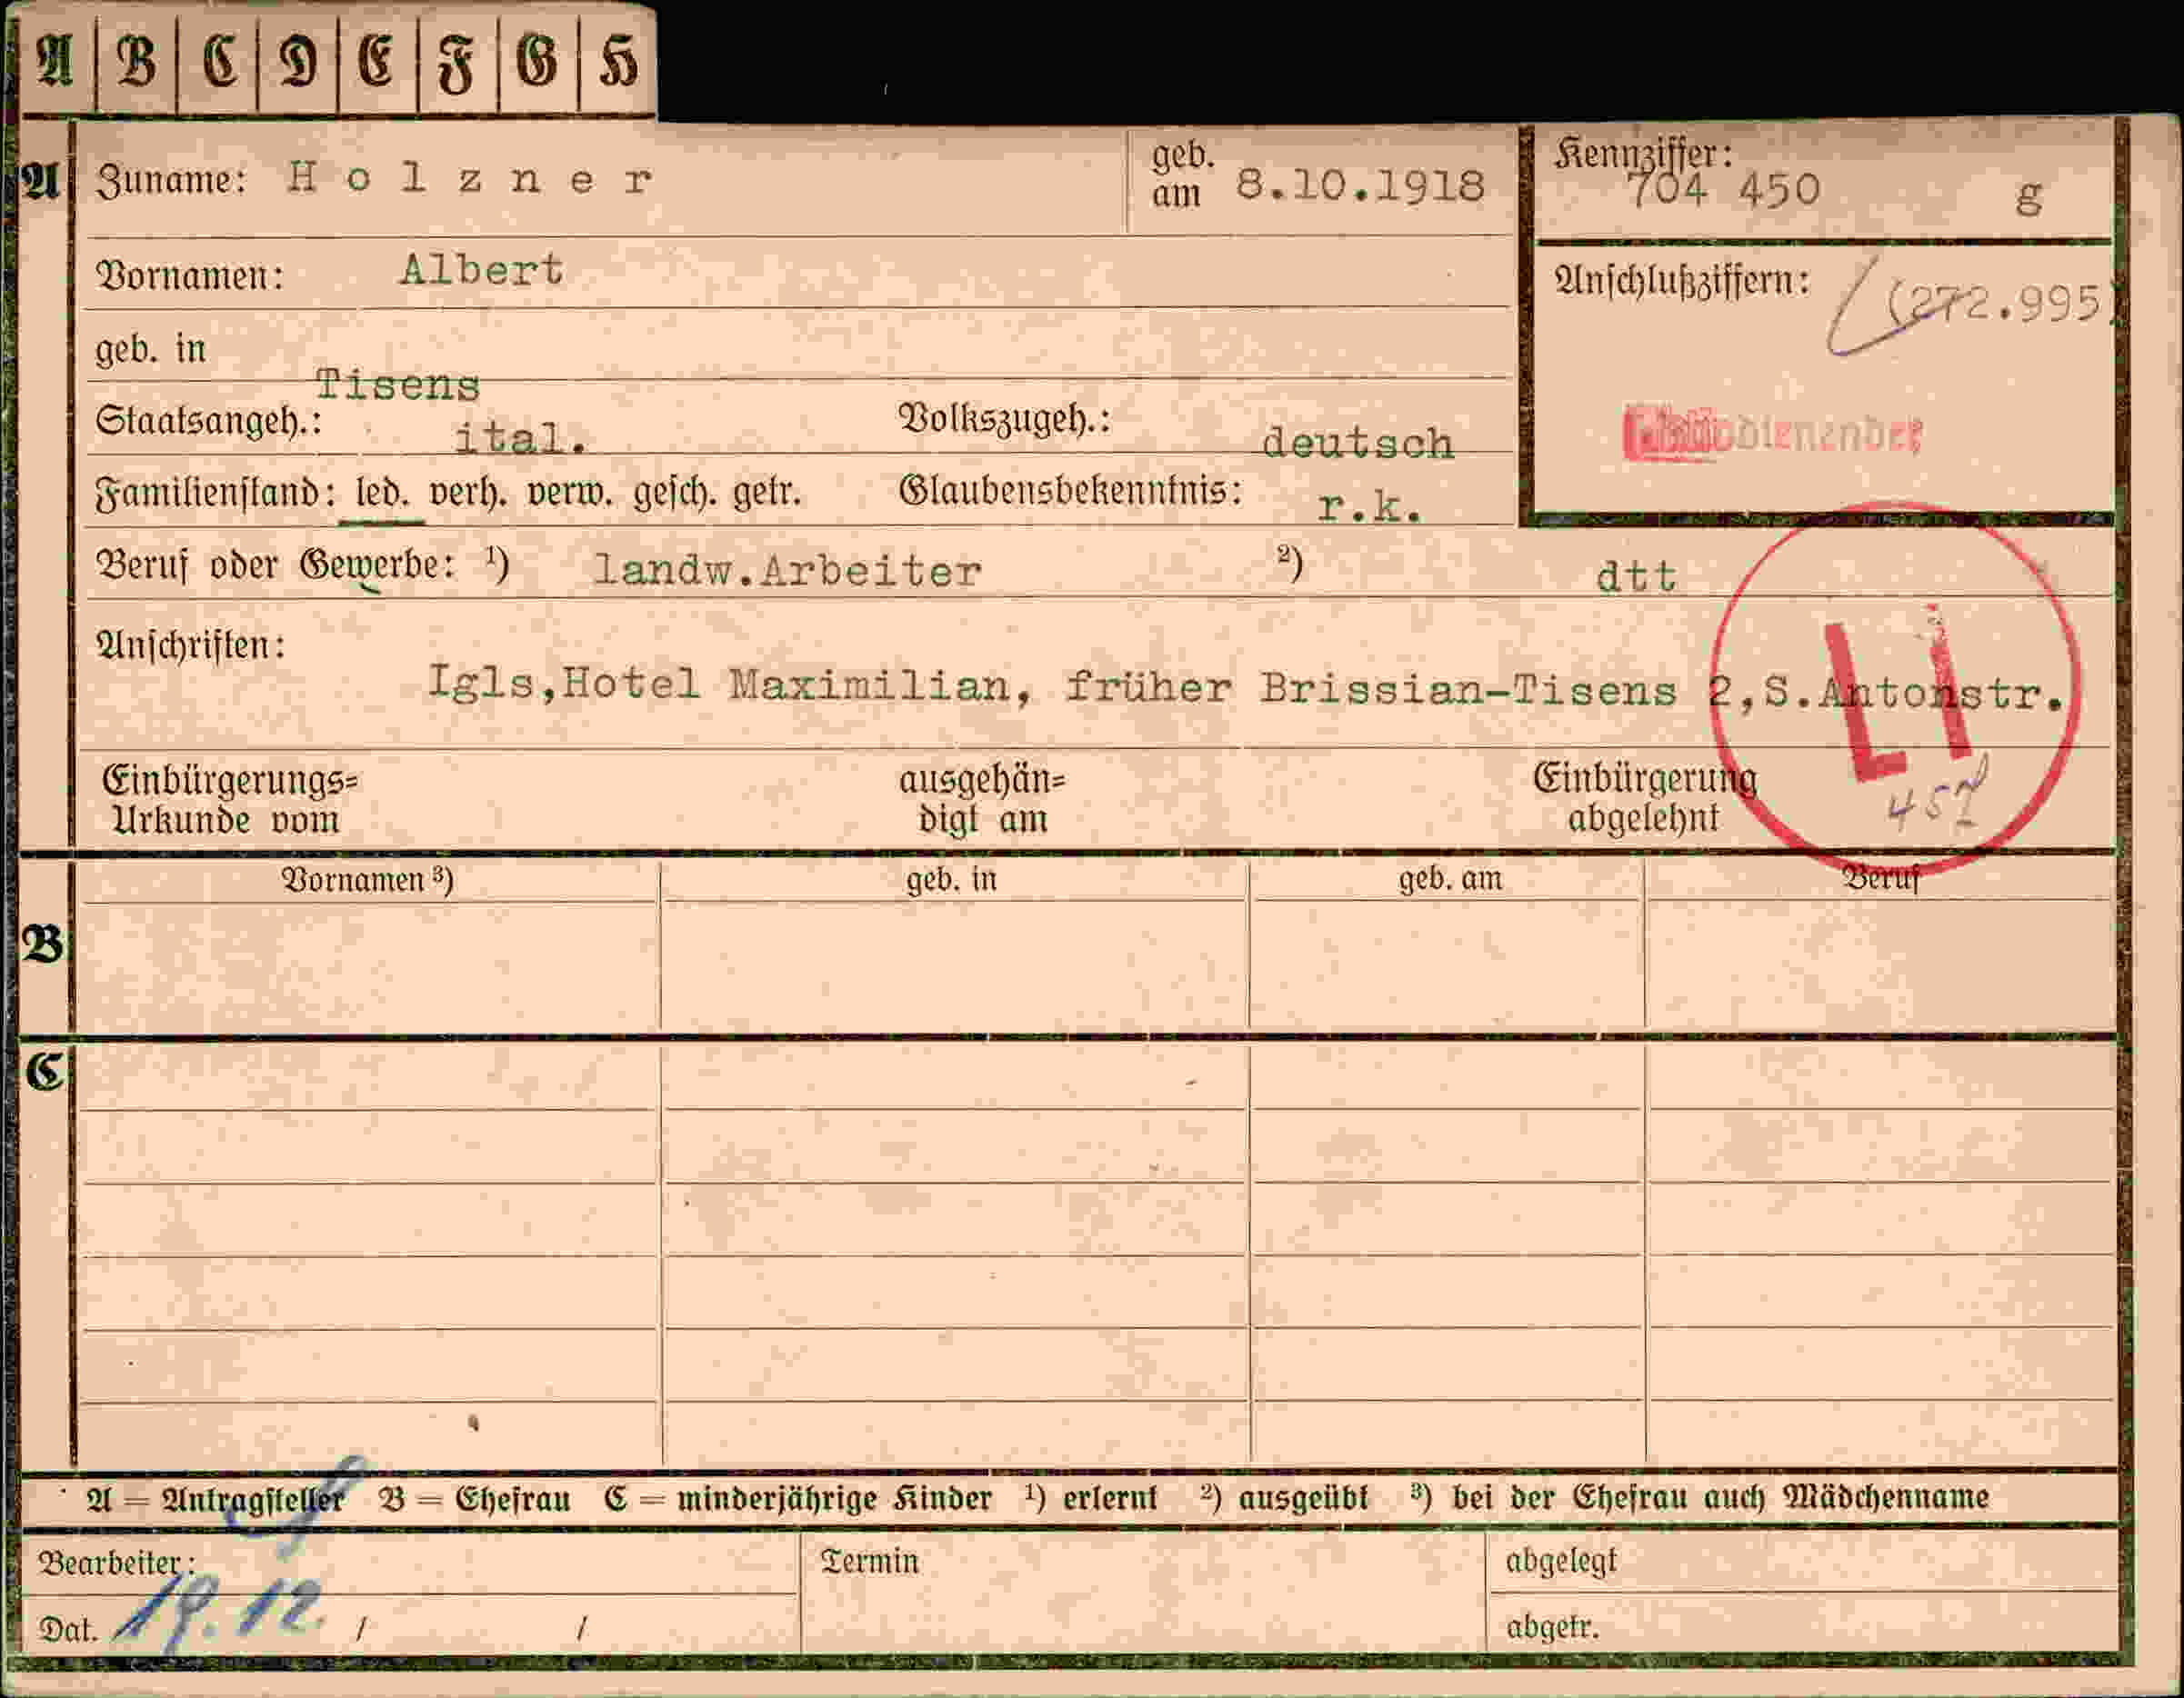 A B C D E F G H
A Zuname: Holzner geb. am 8.10.1918 Kennziffer: 704 450 g
Vornamen: Albert Anschlußziffern: (272.995)
geb. in Tisens
Staatsangeh.: ital. Volkszugeh.: deutsch
Familienstand: led. verh. verw. gesch. getr. Glaubensbekenntnis: r.k.
Beruf oder Gewerbe: ¹) landw.Arbeiter ²) dtt
Anschriften:
Igls,Hotel Maximilian, früher Brissian-Tisens 2,S.Antonstr.
Li
Einbürgerungs= ausgehän= Einbürgerung
Urkunde vom digt am abgelehnt
Vornamen ³) geb. in geb. am Beruf
B
C
A = Antragsteller B = Ehefrau C = minderjährige Kinder ¹) erlernt ²) ausgeübt ³) bei der Ehefrau auch Mädchenname
Bearbeiter: Termin abgelegt
Dat. 19.12. / / abgetr.